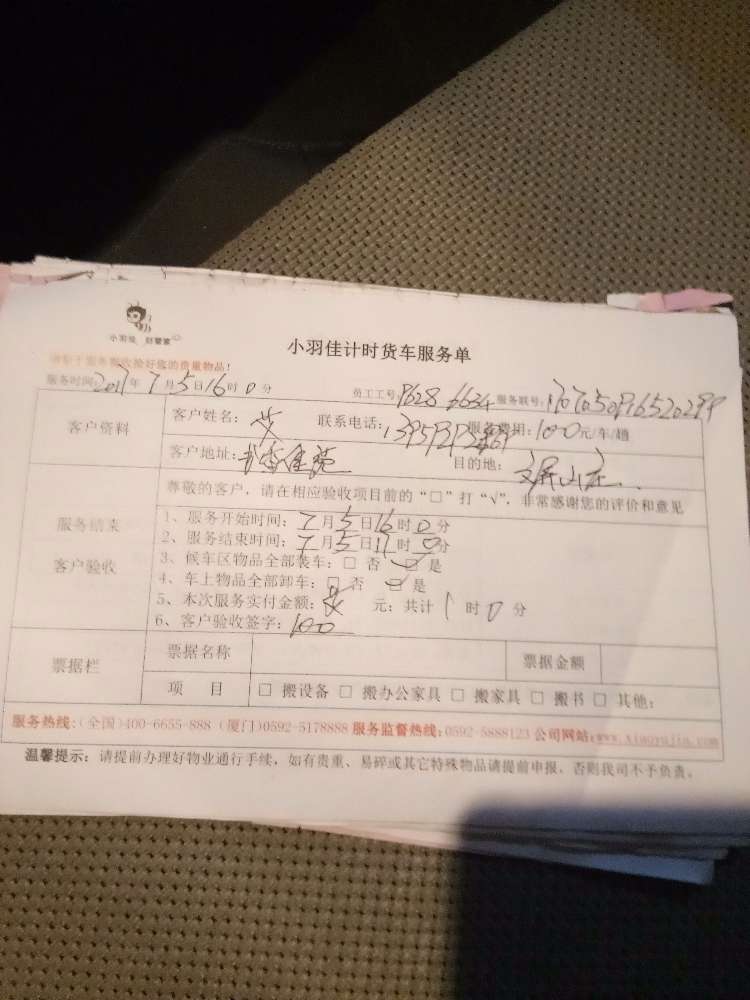 小羽佳 好管家
小羽佳计时货车服务单
服务时间:2017年7月5日16时0分 员工工号: 服务联号:
客户资料
客户姓名: 联系电话: 服务费用:100元/车/趟
客户地址: 目的地:
尊敬的客户,请在相应验收项目前的“□”打“√”,非常感谢您的评价和意见
服务结束
客户验收
1、服务开始时间:7月5日16时0分
2、服务结束时间:7月5日17时0分
3、候车区物品全部装车:□ 否 ☑ 是
4、车上物品全部卸车:□ 否 ☑ 是
5、本次服务实付金额: 元:共计1时0分
6、客户验收签字:100
票据栏
票据名称 票据金额
项 目 □ 搬设备 □ 搬办公家具 □ 搬家具 □ 搬书 □ 其他:
服务热线:(全国)400-6655-888 (厦门)0592-5178888 服务监督热线:0592-5888123 公司网站:www.xiaoyujia.com
温馨提示:请提前办理好物业通行手续,如有贵重、易碎或其它特殊物品请提前申报,否则我司不予负责。